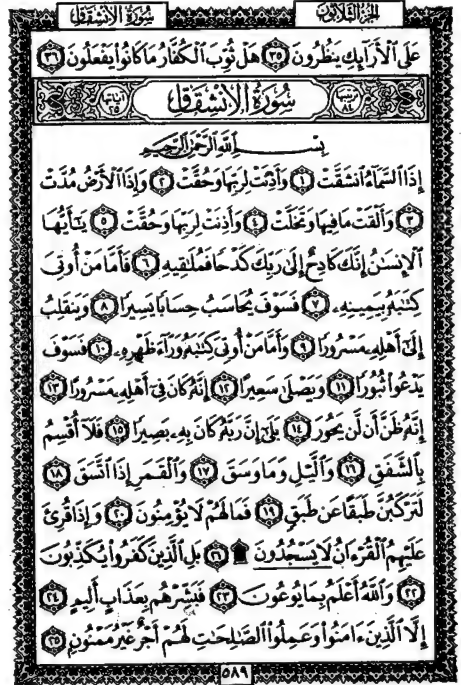 سُورَةُ الانْشِقَاقِ الجُزْءُ الثَّلَاثُونَ
عَلَى ٱلْأَرَآئِكِ يَنظُرُونَ ٣٥ هَلْ ثُوِّبَ ٱلْكُفَّارُ مَا كَانُوا۟ يَفْعَلُونَ ٣٦
ترتيبها ٨٤ سُورَةُ الانْشِقَاقِ آياتها ٢٥
بِسْمِ ٱللَّهِ ٱلرَّحْمَٰنِ ٱلرَّحِيمِ
إِذَا ٱلسَّمَآءُ ٱنشَقَّتْ ١ وَأَذِنَتْ لِرَبِّهَا وَحُقَّتْ ٢ وَإِذَا ٱلْأَرْضُ مُدَّتْ
٣ وَأَلْقَتْ مَا فِيهَا وَتَخَلَّتْ ٤ وَأَذِنَتْ لِرَبِّهَا وَحُقَّتْ ٥ يَٰٓأَيُّهَا
ٱلْإِنسَٰنُ إِنَّكَ كَادِحٌ إِلَىٰ رَبِّكَ كَدْحًا فَمُلَٰقِيهِ ٦ فَأَمَّا مَنْ أُوتِىَ
كِتَٰبَهُۥ بِيَمِينِهِۦ ٧ فَسَوْفَ يُحَاسَبُ حِسَابًا يَسِيرًا ٨ وَيَنقَلِبُ
إِلَىٰٓ أَهْلِهِۦ مَسْرُورًا ٩ وَأَمَّا مَنْ أُوتِىَ كِتَٰبَهُۥ وَرَآءَ ظَهْرِهِۦ ١٠ فَسَوْفَ
يَدْعُوا۟ ثُبُورًا ١١ وَيَصْلَىٰ سَعِيرًا ١٢ إِنَّهُۥ كَانَ فِىٓ أَهْلِهِۦ مَسْرُورًا ١٣
إِنَّهُۥ ظَنَّ أَن لَّن يَحُورَ ١٤ بَلَىٰٓ إِنَّ رَبَّهُۥ كَانَ بِهِۦ بَصِيرًا ١٥ فَلَآ أُقْسِمُ
بِٱلشَّفَقِ ١٦ وَٱلَّيْلِ وَمَا وَسَقَ ١٧ وَٱلْقَمَرِ إِذَا ٱتَّسَقَ ١٨
لَتَرْكَبُنَّ طَبَقًا عَن طَبَقٍ ١٩ فَمَا لَهُمْ لَا يُؤْمِنُونَ ٢٠ وَإِذَا قُرِئَ
عَلَيْهِمُ ٱلْقُرْءَانُ لَا يَسْجُدُونَ ۩ ٢١ بَلِ ٱلَّذِينَ كَفَرُوا۟ يُكَذِّبُونَ
٢٢ وَٱللَّهُ أَعْلَمُ بِمَا يُوعُونَ ٢٣ فَبَشِّرْهُم بِعَذَابٍ أَلِيمٍ ٢٤
إِلَّا ٱلَّذِينَ ءَامَنُوا۟ وَعَمِلُوا۟ ٱلصَّٰلِحَٰتِ لَهُمْ أَجْرٌ غَيْرُ مَمْنُونٍۭ ٢٥
٥٨٩